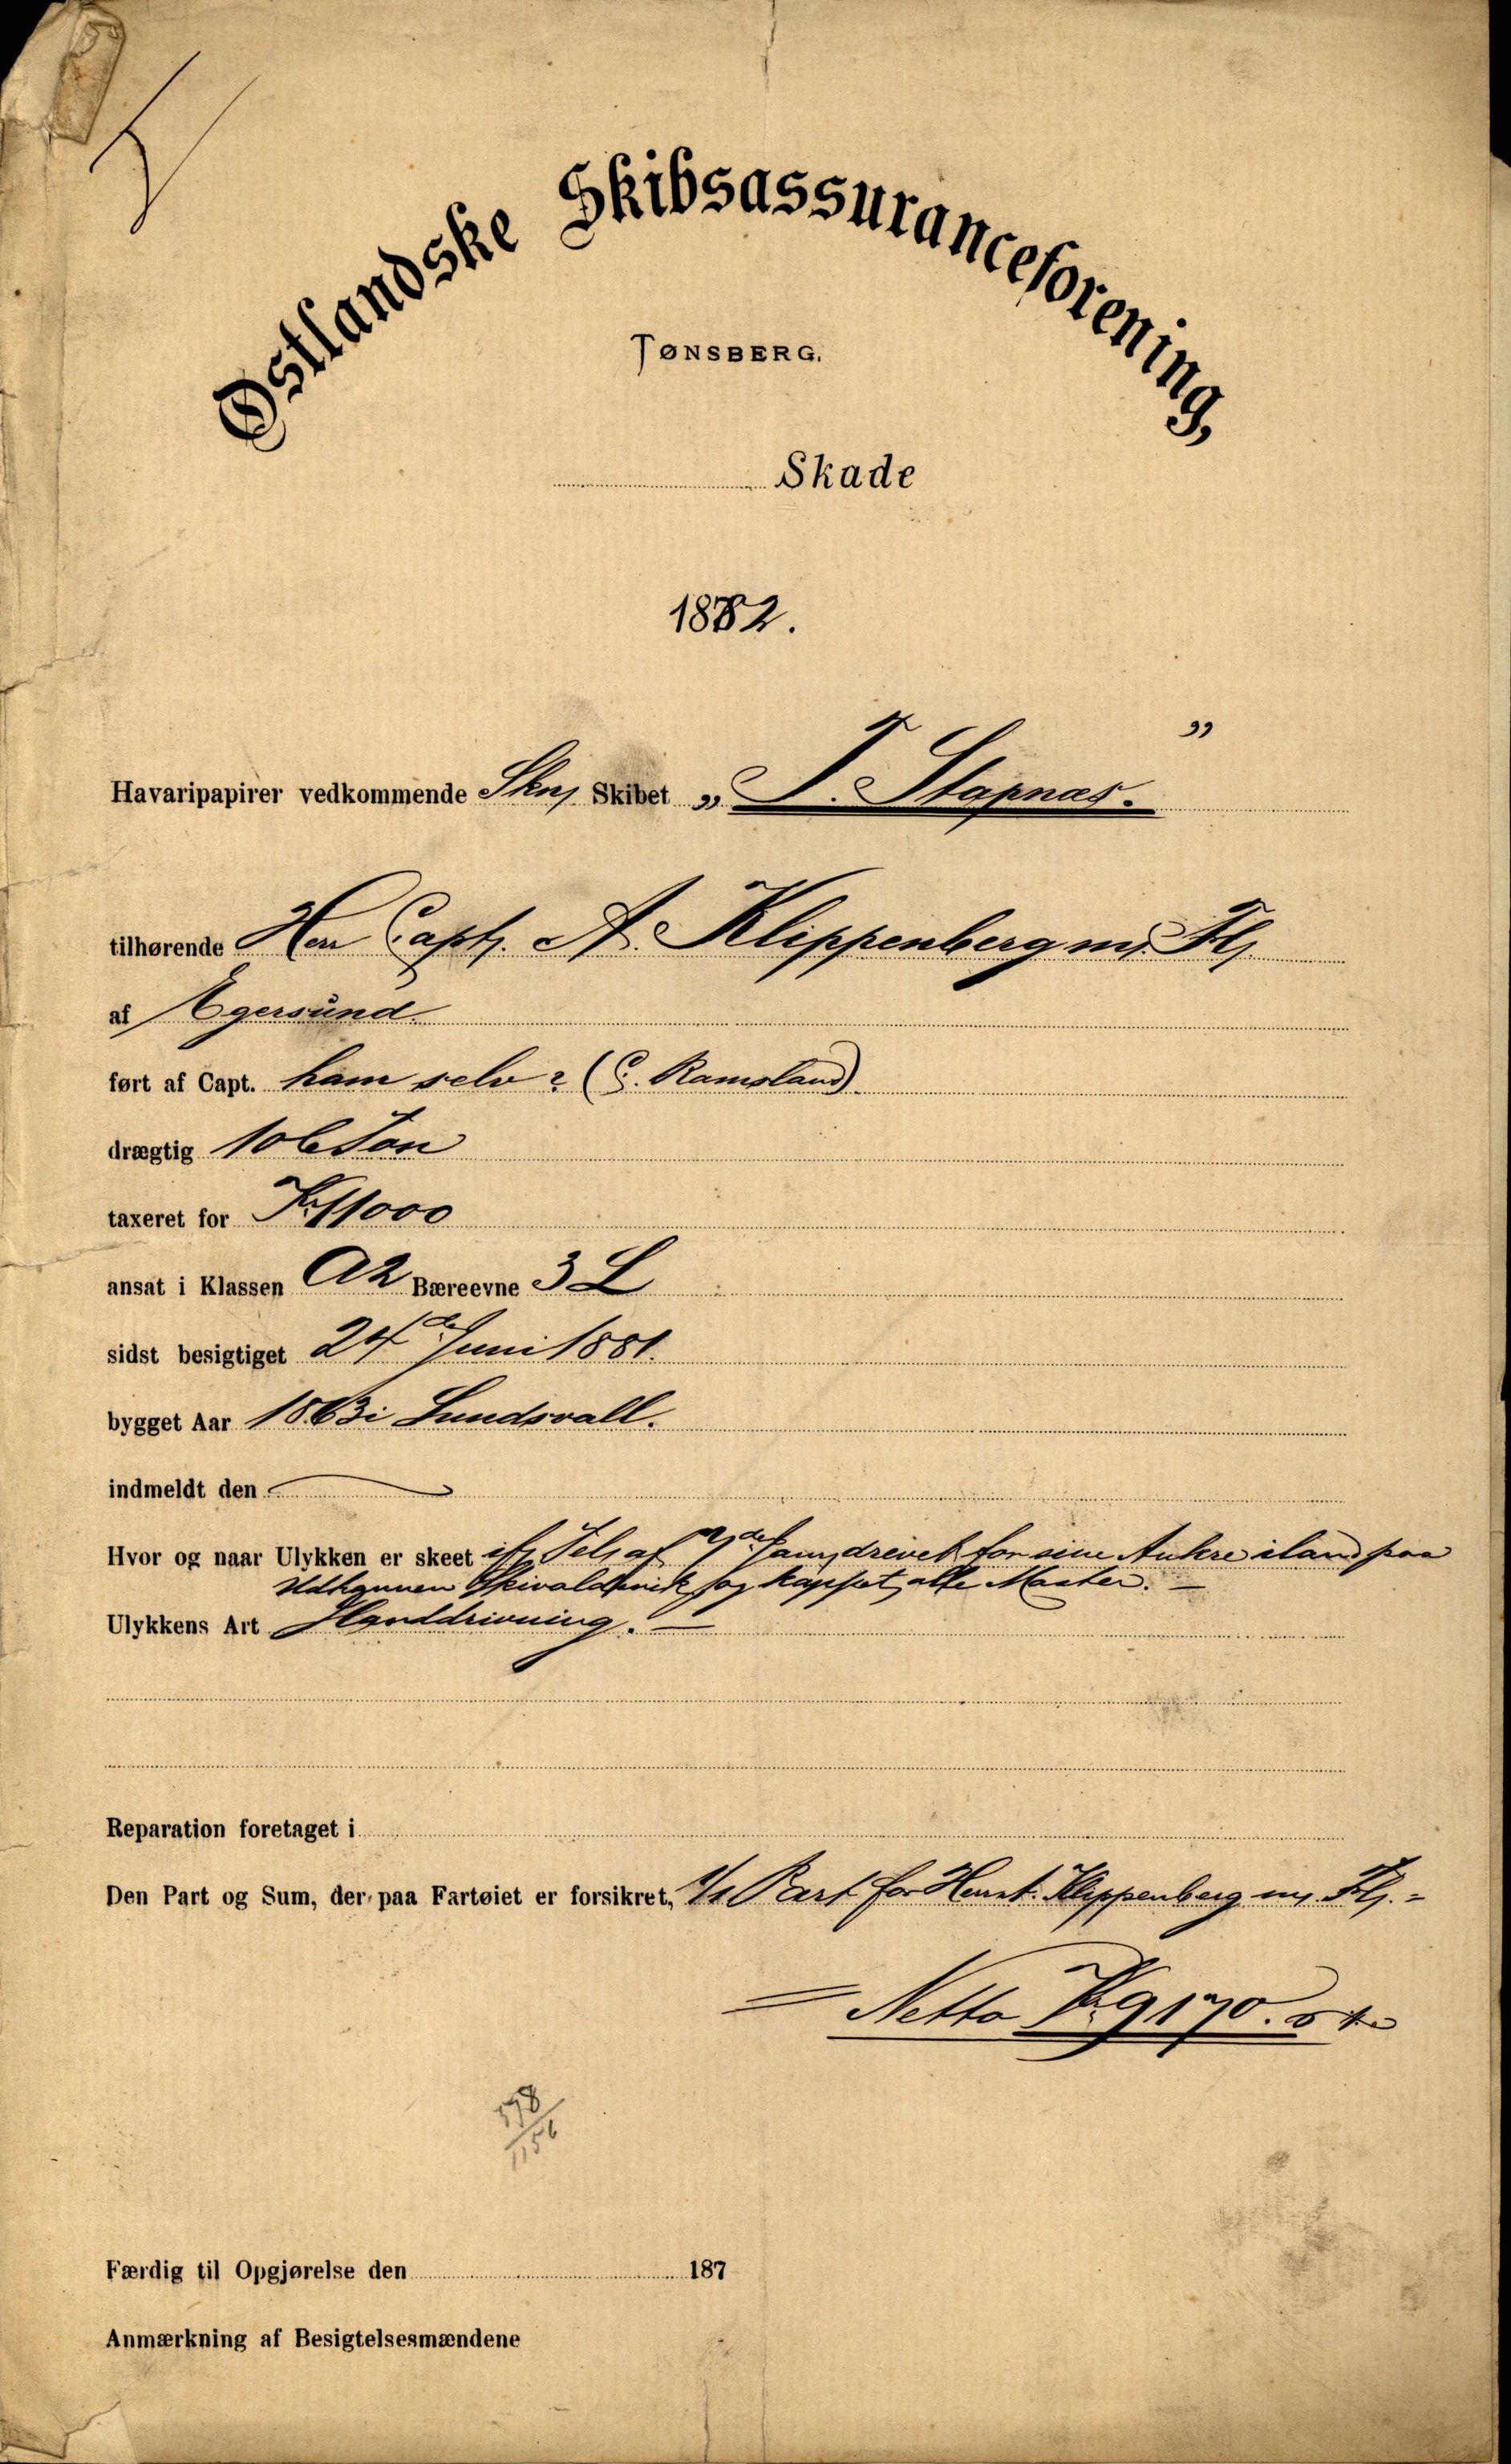 Østlandske Skibsassuranceforening,
TØNSBERG.
Skade
1882.
Havaripapirer vedkommende Skn, Skibet „T. Stapnæs.”
tilhørende Herr Capt. A. Klippenberg m. Fl.
af Egersund.
ført af Capt. ham selv? (C. Ramsland).
drægtig 106 Ton
taxeret for Kr. 11000
ansat i Klassen A2 Bæreevne 3 L
sidst besigtiget 24de Juni 1881.
bygget Aar 1863 i Sundsvall.
indmeldt den
Hvor og naar Ulykken er skeet Tel, af 7de Jan, drevet for sine Ankre iland paa
Udhavnen og kappet alle Master. —
Ulykkens Art Handdrivning. —
Reparation foretaget i
Den Part og Sum, der paa Fartøiet er forsikret, 1/1 Part for Klippenberg m. Fl. =
= Netto Kr 9170.
578
1156
Færdig til Opgjørelse den 187
Anmærkning af Besigtelsesmændene